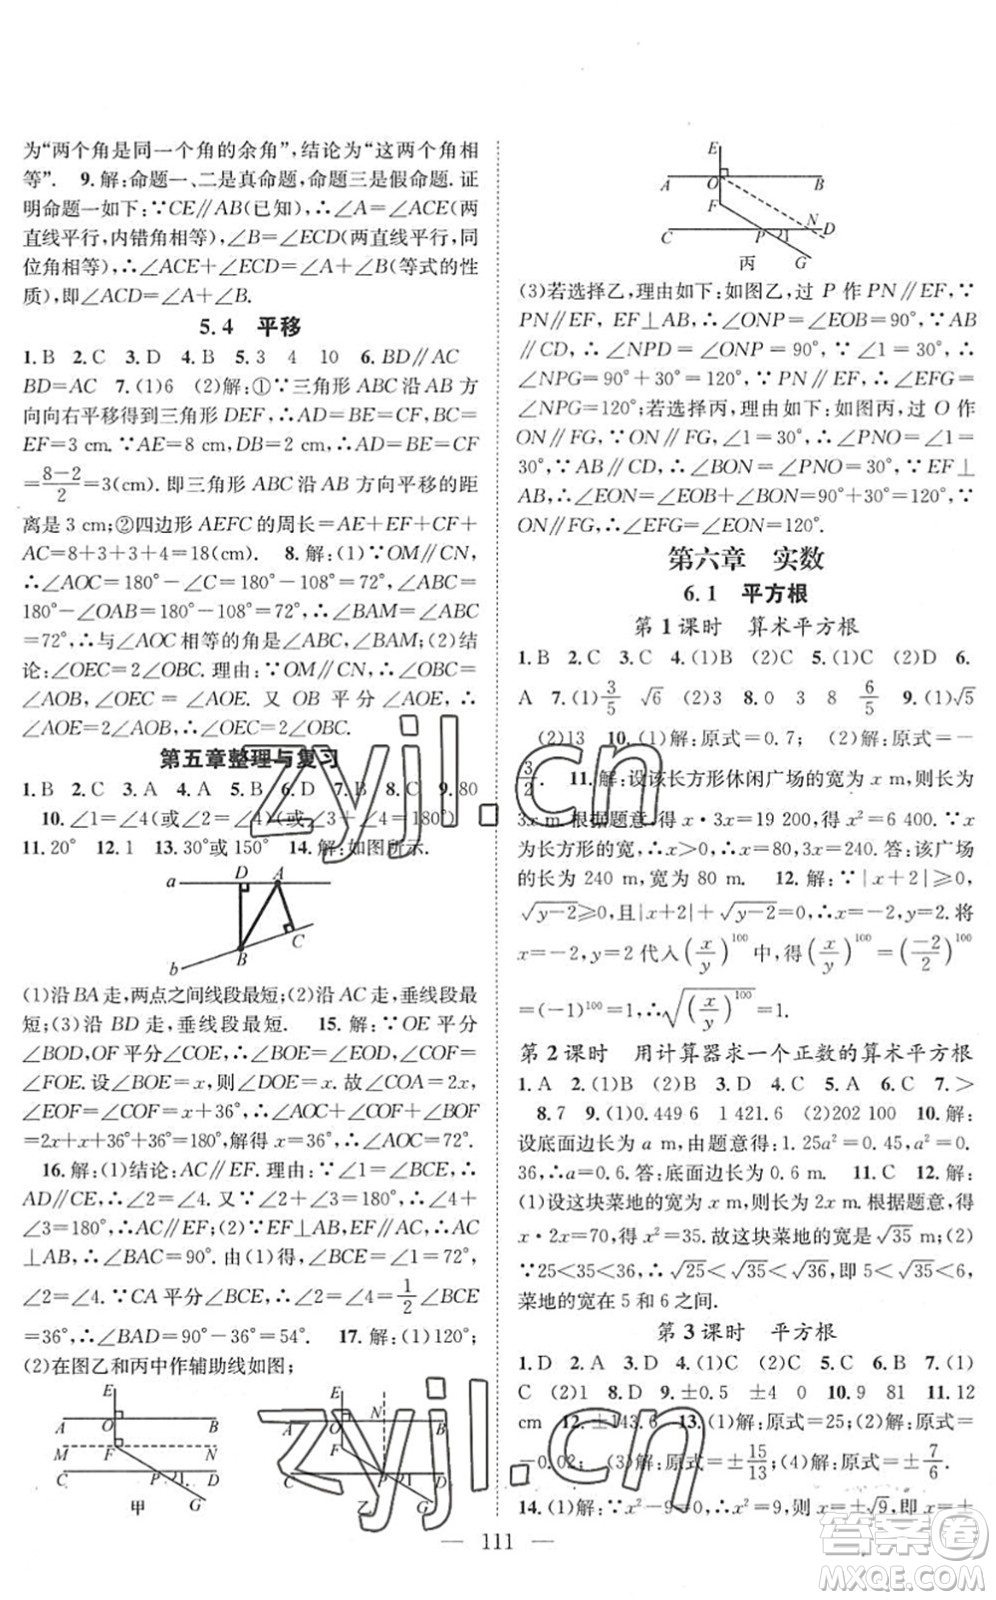 为“两个角是同一个角的余角”,结论为“这两个角相
等”. 9.解:命题一、二是真命题,命题三是假命题.证
明命题一如下:∵CE∥AB(已知),∴∠A=∠ACE(两
直线平行,内错角相等),∠B=∠ECD(两直线平行,同
位角相等),∴∠ACE+∠ECD=∠A+∠B(等式的性
质),即∠ACD=∠A+∠B.
5.4 平移
1.B 2.C 3.D 4.B 5.3 4 10 6.BD∥AC
BD=AC 7.(1)6 (2)解:①∵三角形ABC沿AB方
向向右平移得到三角形DEF,∴AD=BE=CF,BC=
EF=3 cm.∵AE=8 cm,DB=2 cm,∴AD=BE=CF
=(8-2)/2=3(cm).即三角形ABC沿AB方向平移的距
离是3 cm;②四边形AEFC的周长=AE+EF+CF+
AC=8+3+3+4=18(cm). 8.解:(1)∵OM∥CN,
∴∠AOC=180°-∠C=180°-108°=72°,∠BAM=
180°-∠OAB=180°-108°=72°,∴∠ABC=∠BAM
=72°,∴与∠AOC相等的角是∠ABC,∠BAM;(2)结
论:∠OEC=2∠OBC.理由:∵OM∥CN,∴∠OBC=
∠AOB,∠OEC=∠AOE.又∵OB平分∠AOE,∴
∠AOE=2∠AOB,∴∠OEC=2∠OBC.
第五章整理与复习
1.B 2.C 3.A 4.A 5.B 6.D 7.B 8.C 9.80
10.∠1=∠4(或∠2=∠4)(或∠3+∠4=180°)
11.20° 12.1 13.30°或150° 14.解:如图所示.
D A
a
B C
b
(1)沿BA走,两点之间线段最短;(2)沿AC走,垂线段最
短;(3)沿BD走,垂线段最短. 15.解:∵OE平分
∠BOD,OF平分∠COE,∴∠BOE=∠DOE,∠COF=
∠FOE.设∠BOE=x,则∠DOE=x.故∠COA=2x,
∠EOF=∠COF=x+36°,∴∠AOC+∠COF+∠BOF
=2x+x+36°+36°=180°,解得x=36°,∴∠AOC=72°.
16.解:(1)结论:AC∥EF.理由:∵∠1=∠BCE,∴
AD∥CE,∴∠2=∠4.又∵∠2+∠3=180°,∴∠4+
∠3=180°,∴AC∥EF;(2)∵AC∥EF,EF⊥AB,∴AC
⊥AB,∴∠BAC=90°.由(1)得,∠BCE=∠1=72°,
∠2=∠4.∵CA平分∠BCE,∴∠2=∠4=1/2∠BCE
=36°,∴∠BAD=90°-36°=54°. 17.解:(1)120°;
(2)在图乙和丙中作辅助线如图;
E
A O B
M F N
C P D
G
甲
E N
A O B
F
C P D
G
乙
E
A O B
F N
C P D
G
丙
(3)若选择乙,理由如下:如图乙,过P作PN∥EF,∵
PN∥EF,EF⊥AB,∴∠ONP=∠EOB=90°,∵AB∥CD,
∴∠NPD=∠ONP=90°,∵∠1=30°,∴
∠NPG=90°+30°=120°,∵PN∥EF,∴∠EFG=
∠NPG=120°;若选择丙,理由如下:如图丙,过O作
ON∥FG,∵ON∥FG,∠1=30°,∴∠PNO=∠1=
30°,∵AB∥CD,∴∠BON=∠PNO=30°,∵EF⊥
AB,∴∠EOB=90°,∴∠EON=∠EOB+∠BON=90°+30°=120°,∵
ON∥FG,∴∠EFG=∠EON=120°.
第六章 实数
6.1 平方根
第1课时 算术平方根
1.B 2.C 3.C 4.(1)B (2)C 5.(1)C (2)D 6.
A 7.(1)3/5 √6 (2)3 8.0 3 8 6/5 9.(1)√5
(2)13 10.(1)解:原式=0.7; (2)解:原式=-
3/2. 11.解:设该长方形休闲广场的宽为x m,则长为
3x m.根据题意,得x·3x=19 200,即x²=6 400.∵x
为长方形的宽,∴x>0,∴x=80,3x=240.答:该广场
的长为240 m,宽为80 m. 12.解:∵|x+2|≥0,
√(y-2)≥0,且|x+2|+√(y-2)=0,∴x=-2,y=2.将
x=-2,y=2代入(x/y)¹⁰⁰中,得(x/y)¹⁰⁰=(-2/2)¹⁰⁰
=(-1)¹⁰⁰=1,∴√((x/y)¹⁰⁰)=√1=1.
第2课时 用计算器求一个正数的算术平方根
1.A 2.(1)B (2)B 3.D 4.D 5.A 6.C 7.>
8.7 9.(1)0.449 6 1 421.6 (2)202 100 10.解:
设底面边长为a m,由题意得:1.25a²=0.45,a²=0.
36,∴a=0.6.答:底面边长为0.6 m. 11.C 12.解:
(1)设这块菜地的宽为x m,则长为2x m.根据题意,得
x·2x=70,得x²=35.故这块菜地的宽是√35 m;(2)
∵25<35<36,∴√25<√35<√36,即5<√35<6,
菜地的宽在5和6之间.
第3课时 平方根
1.D 2.A 3.D 4.(1)B (2)C 5.C 6.B 7.(1)
C (2)1 8.D 9.±0.5 ±4 0 10.9 81 11.12
cm 12.±143.6 13.(1)解:原式=25;(2)解:原式=
-0.02; (3)解:原式=±15/13; (4)解:原式=±7/6.
14.(1)解:∵x²-9=0,∴x²=9,则x=±√9,即x=±
— 111 —
zyjl.cn
zyjl.cn
答案圈
MXQE.COM